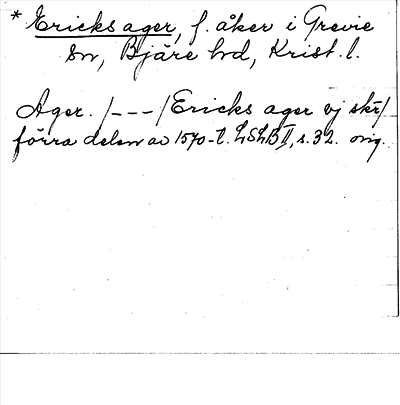 * Ericks ager, f. åker i Grevie
sn, Bjäre hd, Krist. l.
Ager. /---/ Ericks ager vj skr/
förra delen av 1570-t. LSLB II, s. 32. orig.